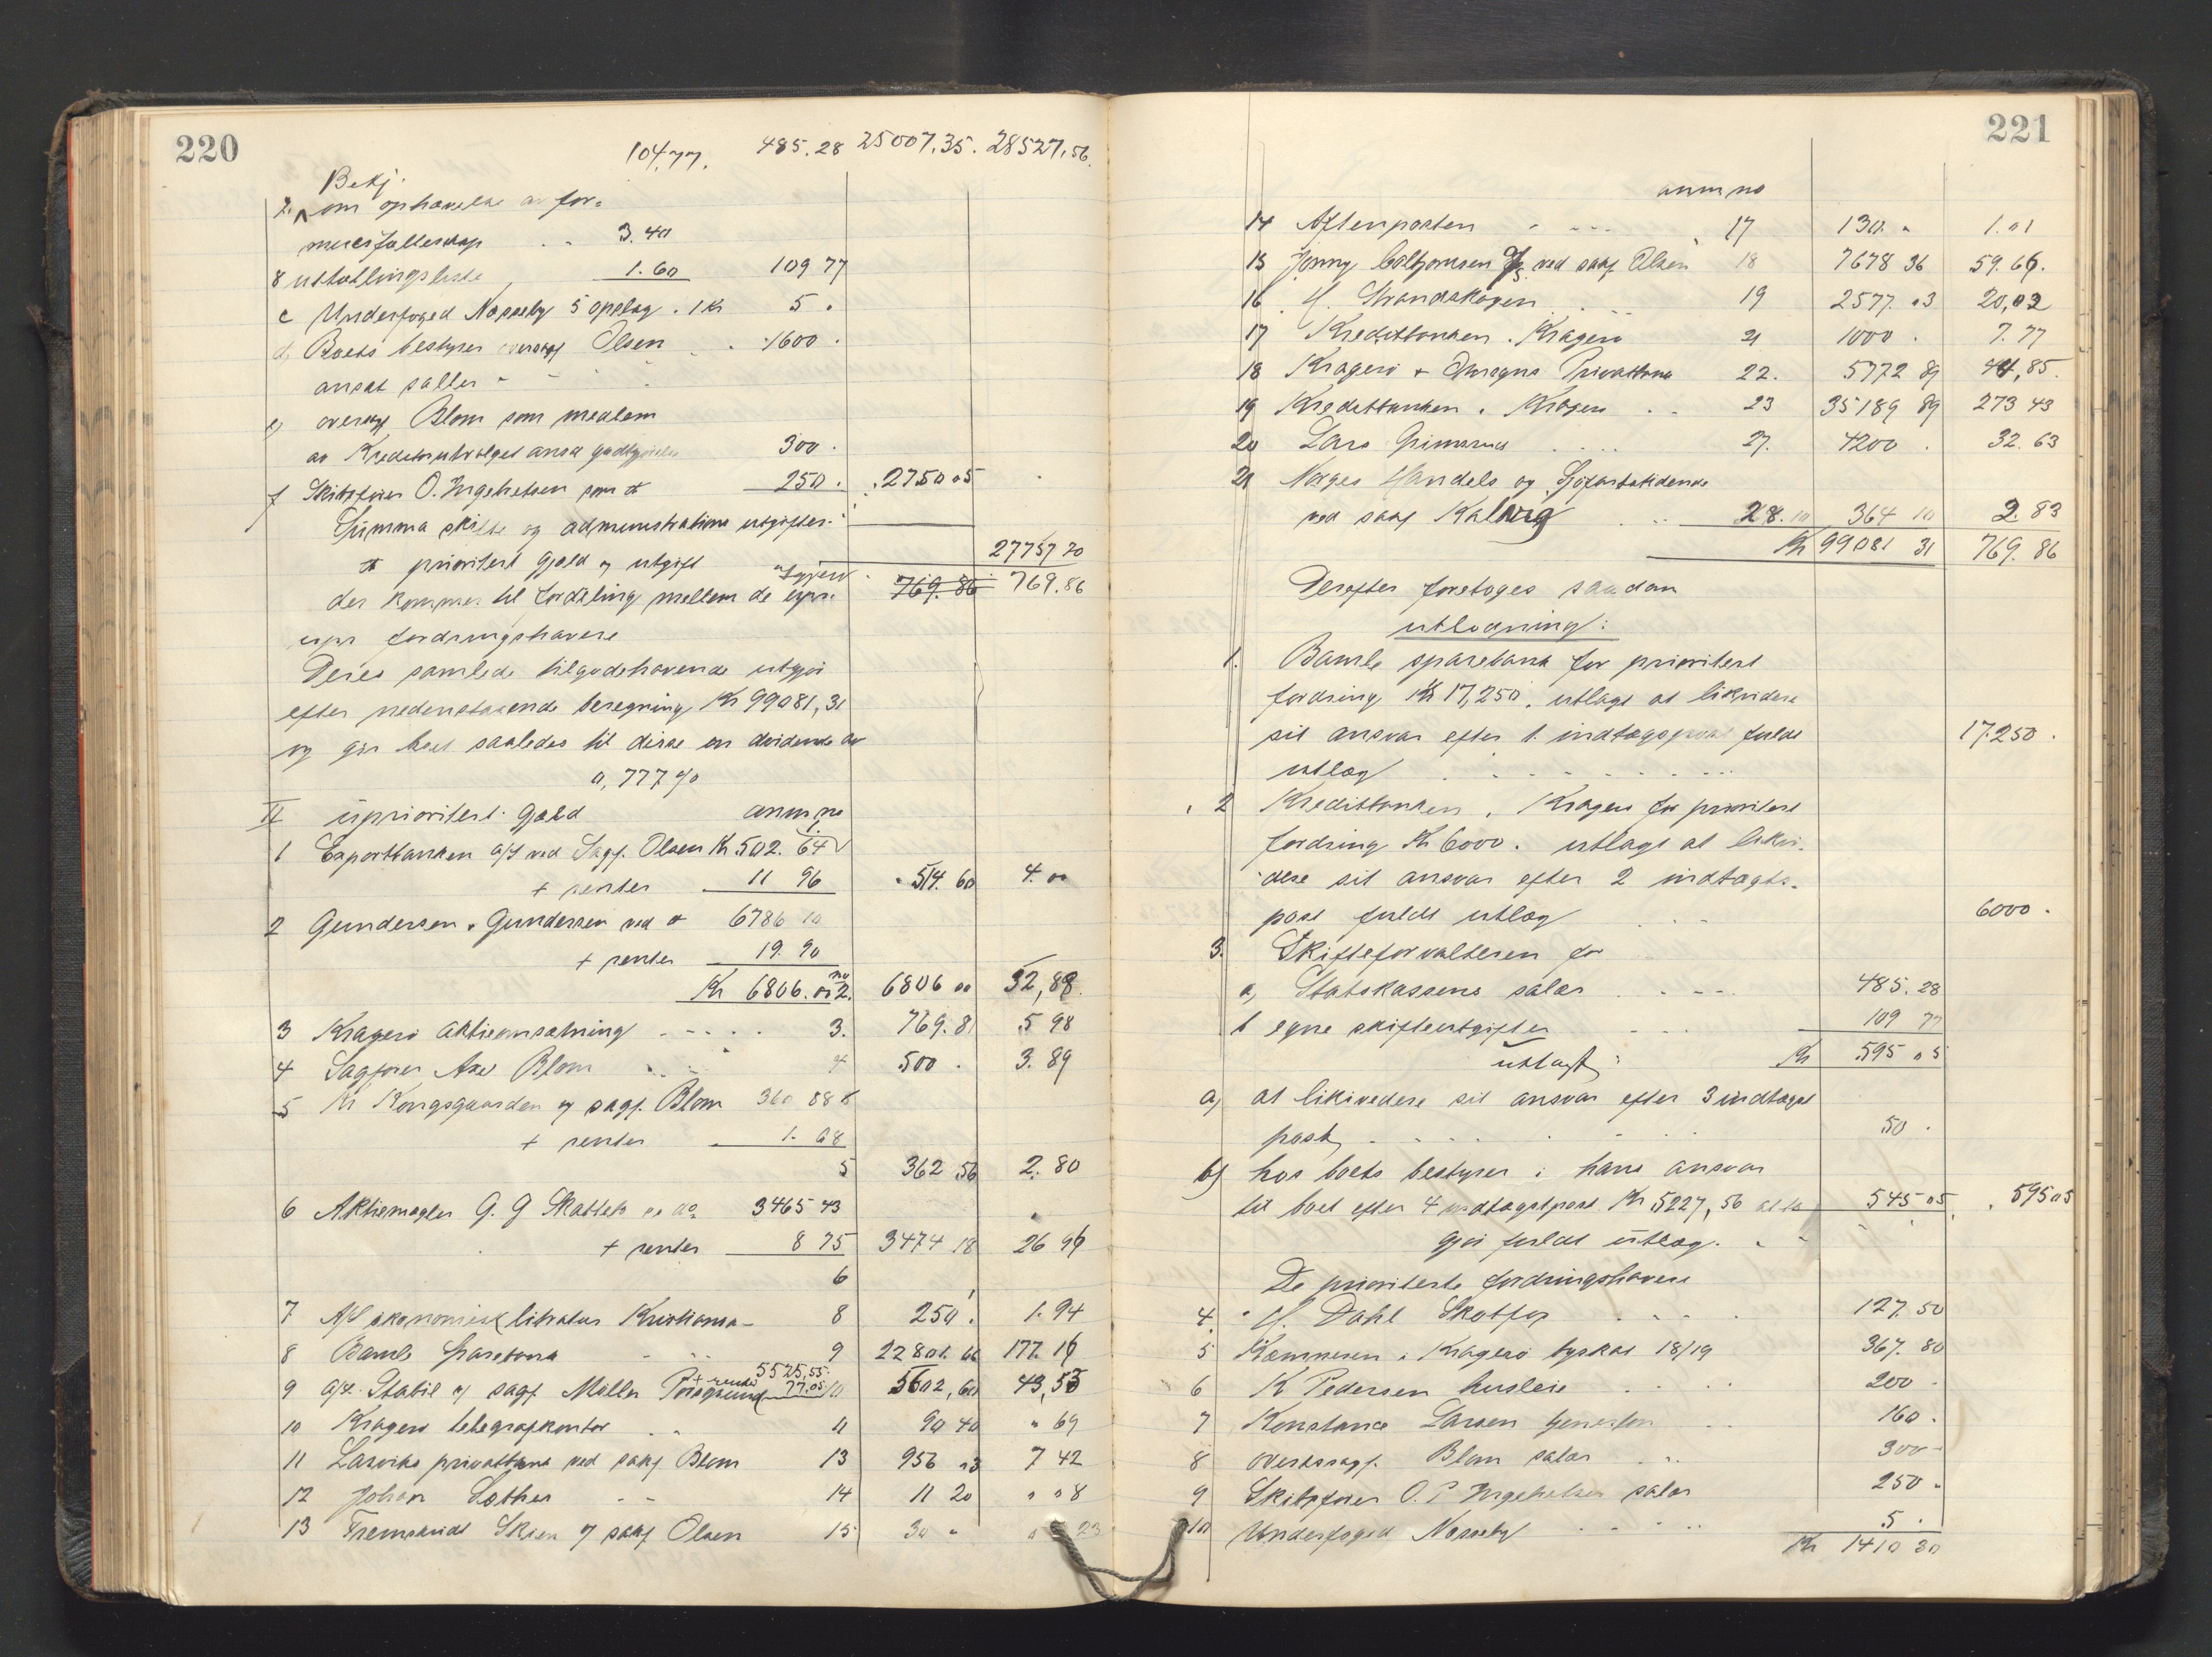 220
104,77. 485.28 25007.35. 28527,56.
Bekj.
7. om ophævelse av for-
muesfællesskap . . 3.40
8 utlodningsliste 1.60 109 77
c Underfoged Næsseby 5 opslag . 1 kr 5 .
d, Boets bestyrer overssgf Olsen . . 1600 .
ansat salær - - - -
e, overssgf Blom som medlem
av Kreditorutvalget ansat godtgjørelse 300 .
f Skibsfører O. Ingebretsen som do 250 . 2750 05
Summa skifte og administrations utgifter.
do prioritert gjæld og utgift 27757 70
der kommer til fordeling mellem de utgjør 769.86 769.86
upr fordringshavere
Deres samlede tilgodehavende utgjør
efter nedenstaaende beregning Kr 99081,31
og gir boet saaledes til disse en dividende av
0,777 %
II uprioritert gjæld anm no
1 Exportbanken A/S ved Sagf. Olsen Kr 502. 64 1
+ renter 11 96 514. 60 4. 00
2 Gundersen & Gundersen ved do 6786 10
+ renter 19. 90
Kr 6806. 00 no 2. 6806 00 52,88
3 Kragerø aktieomsætning - - - . . 3. 769. 81 5 98
4 Sagfører Axel Blom . . 4 500 . 3. 89
5 Kr Kongsgaarden v sagf. Blom 360 88
+ renter 1. 68
5 362 56 2. 80
6 Aktiemægler G. G Skattebo 3465 43
+ renter 8 75 3474 18 26 99
6
7 A/S økonomisk litratur Kristiania - 8 250 . 1. 94
8 Bamle Sparebank - . . 9 22801. 66 177. 16
9 A/S. Stabil v/ sagf. Møller Porsgrund 5525,55 + renter 77.05 10 5602,60 43,53
10 Kragerø telegrafkontor . . 11 90 40 " 69
11 Larviks privatbank ved sakf Blom 13 956 03 7 42
12 Johan Sæther - - 14 11 20 " 08
13 Fremskridt Skien v sakf Olsen 15 30 " " 23
221
anm no
14 Aftenposten - - - - 17 130. " 1. 01
15 Jonny ved sakf Olsen 18 7678 36 59. 66.
16 H. Strandskogen . . . 19 2577. 03 20,02
17 Kreditbanken . Kragerø 21 1000 . 7. 77
18 Kragerø & Omegns Privatbank 22. 5772 89 44,85.
19 Kreditbanken . Kragerø . . 23 35189 89 273 43
20 Lars Grimsrud . . . . 27. 4200 . 32. 63
21 Norges Handels og Sjøfartstidende
ved sakf Kalberg . . 28. 10 364 10 2. 83
Kr 99081 31 769. 86
Derefter foretoges saadan
utlodning:
1. Bamle sparebank for prioritert
fordring Kr 17,250, utlagt at likvidere
sit ansvar efter 1. indtægtspost fuldt
utlæg . - - - - - - . . 17.250 .
2 Kreditbanken, Kragerø for prioritert
fordring Kr 6000. utlagt at likvi-
dere sit ansvar efter 2 indtægts-
post fuldt utlæg . . - 6000 .
3. Skifteforvalteren for
a, Statskassens salær . . - - - 485. 28
b egne skifteutgifter - - - 109 77
utlagt: Kr 595 05
a, at likividere sit ansvar efter 3 indtægts
post, - - - - . . . . 50 .
b, hos boets bestyrer i hans ansvar
til boet efter 4 indtægtspost Kr 5227,56 545 05 . 595 05
gjør fuldt utlæg. . -
De prioriterte fordringshavere
4. H. Dahl Skotfos . . . . 127. 50
5 Kæmneren i Kragerø byskat 18/19 367. 80
6 K Pedersen husleie . . . . 200 -
7 Konstance Larsen tjenerløn . . . 160 .
8 overssagf. Blom salær . . . 300 -
9 Skibsfører O. P Ingebretsen salær 250 .
10 Underfoged Næsseby . . . . . 5 .
Kr 1410 30